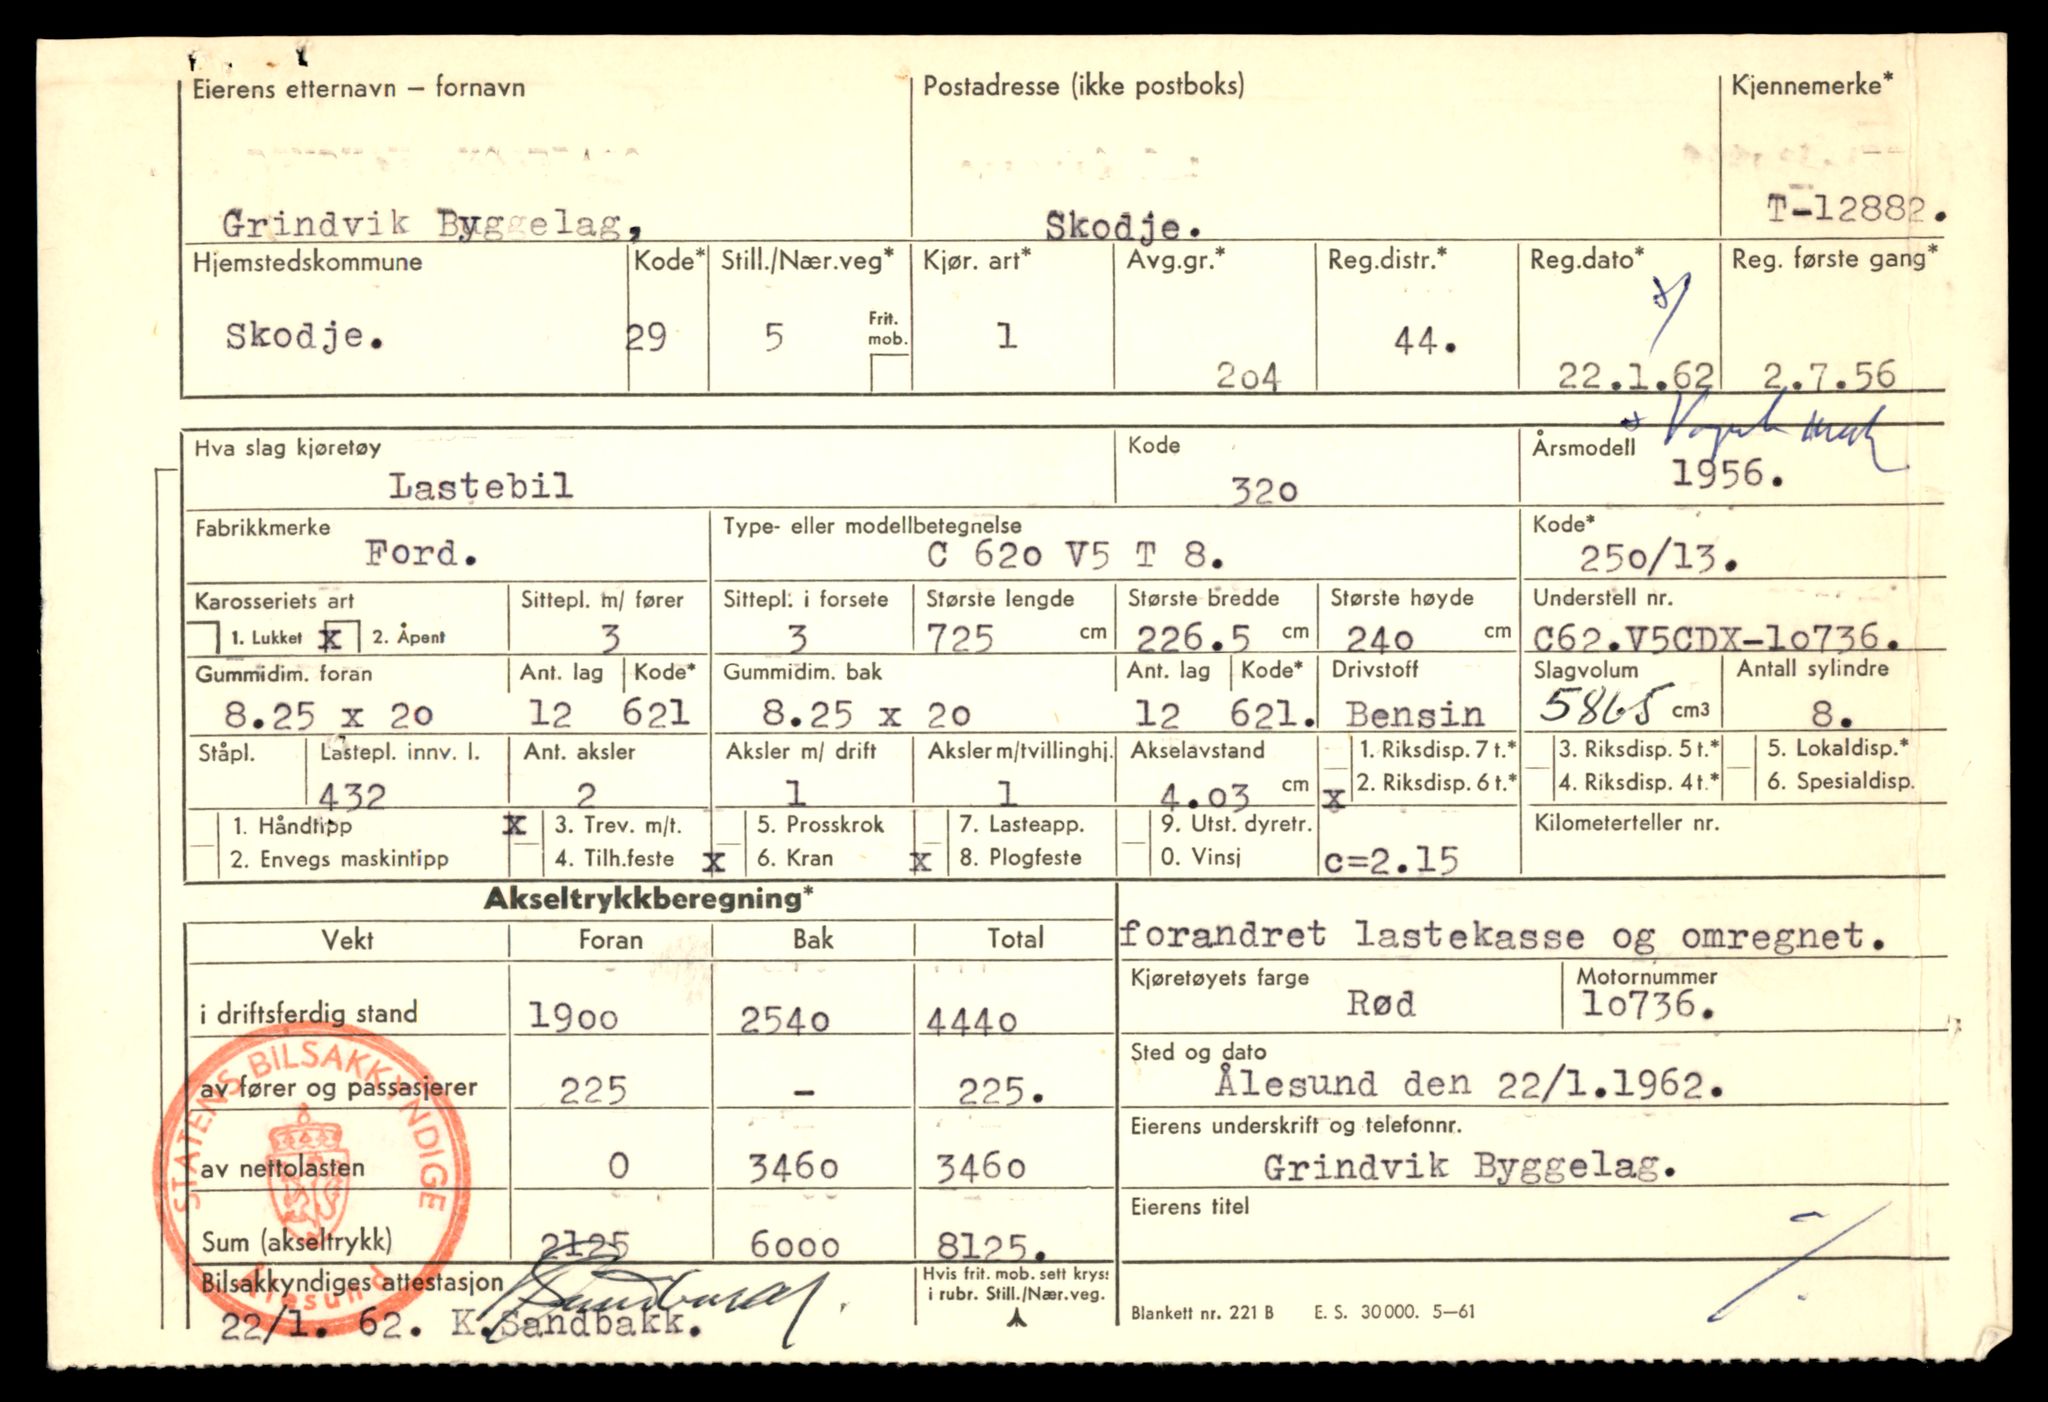 Eierens etternavn – fornavn Postadresse (ikke postboks) Kjennemerke*
Grindvik Byggelag, Skodje. T-12882.
Hjemstedskommune Kode* Still./Nær.veg* Kjør. art* Avg.gr.* Reg.distr.* Reg.dato* Reg. første gang*
Frit. mob.
Skodje. 29 5 1 204 44. 22.1.62 2.7.56
Hva slag kjøretøy Kode Årsmodell
Lastebil 320 1956.
Fabrikkmerke Type- eller modellbetegnelse Kode*
Ford. C 620 V5 T 8. 250/13.
Karosseriets art Sittepl. m/ fører Sittepl. i forsete Største lengde Største bredde Største høyde Understell nr.
1. Lukket x 2. Åpent 3 3 725 cm 226.5 cm 240 cm C62.V5CDX-10736.
Gummidim. foran Ant. lag Kode* Gummidim. bak Ant. lag Kode* Drivstoff Slagvolum Antall sylindre
8.25 x 20 12 621 8.25 x 20 12 621. Bensin 5865 cm3 8.
Ståpl. Lastepl. innv. l. Ant. aksler Aksler m/ drift Aksler m/tvillinghj. Akselavstand 1. Riksdisp. 7 t.* 3. Riksdisp. 5 t.* 5. Lokaldisp.*
432 2 1 1 4.03 cm x 2. Riksdisp. 6 t.* 4. Riksdisp. 4 t.* 6. Spesialdisp.
1. Håndtipp x 3. Trev. m/t. 5. Prosskrok 7. Lasteapp. 9. Utst. dyretr. Kilometerteller nr.
2. Envegs maskintipp 4. Tilh.feste x 6. Kran x 8. Plogfeste 0. Vinsj c=2.15
Akseltrykkberegning*
Vekt Foran Bak Total
forandret lastekasse og omregnet.
Kjøretøyets farge Motornummer
Rød 10736.
i driftsferdig stand 1900 2540 4440
Sted og dato
Ålesund den 22/1.1962.
av fører og passasjerer 225 – 225.
Eierens underskrift og telefonnr.
Grindvik Byggelag.
av nettolasten 0 3460 3460
Eierens titel
Sum (akseltrykk) 2125 6000 8125.
Bilsakkyndiges attestasjon Hvis frit. mob. sett kryss
i rubr. Still./Nær.veg.
22/1. 62. K.Sandbakk.
Blankett nr. 221 B E. S. 30000. 5–61
STATENS BILSAKKYNDIGE
Ålesund